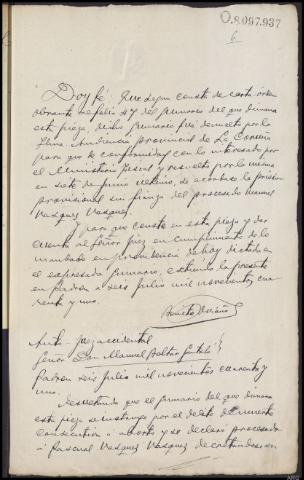 O.8.097.937
6
Doy fé: Que segun consta de carta orden
obrante al folio 47 del sumario del que dimana
esta pieza, dicho sumario fué devuelto por la
Ilma. Audiencia provincial de La Coruña
para que de conformidad con lo interesado por
el Ministerio fiscal y resuelto por la misma
en siete de junio último, se acordase la prision
provisional sin fianza del procesado Manuel
Vazquez Vazquez.
Y para que conste en esta pieza y dar
cuenta al Señor Juez en cumplimiento de lo
mandado en providencia de hoy dictada en
el expresado sumario, extiendo la presente
en Padron a seis Julio mil novecientos cua
renta y uno.
Auto - Juez accidental
Señor Don Manuel Baltar
Padron seis Julio mil novecientos cuarenta y
uno.
Resultando que el sumario del que dimana
esta pieza se instruye por el delito de muerte
consecutiva a aborto y se declaró procesado
a Pascual Vazquez Vazquez decretandose su